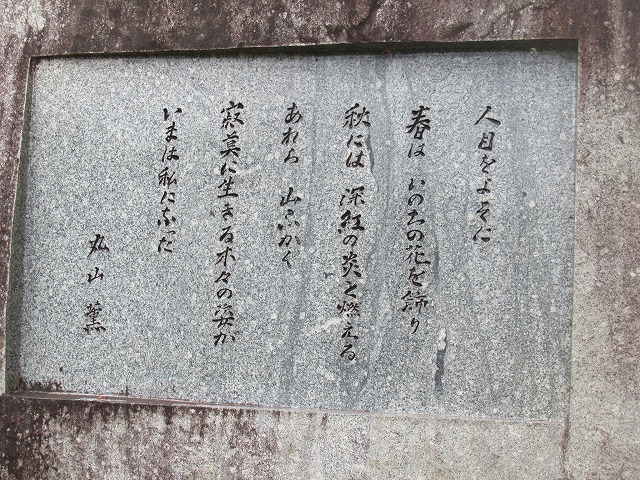 人目をよそに
春は いのちの花を飾り
秋には 深紅の炎と燃える
あれら 山ふかく
寂莫に生きる木々の姿が
いまは私になった
丸山薫